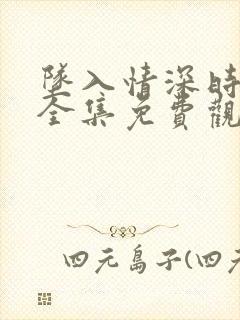 隊入情深時
全集免費觀
四元島子(四元